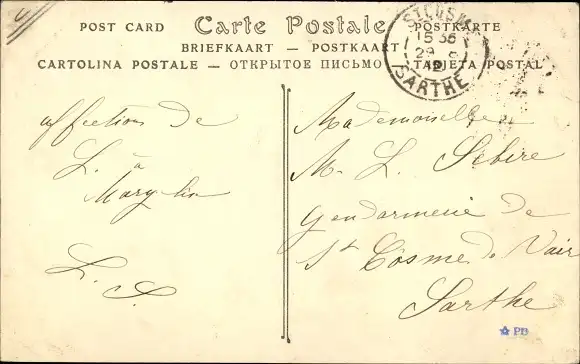 POST CARD Carte Postale POSTKARTE
BRIEFKAART — POSTKAART
CARTOLINA POSTALE — ОТКРЫТОЕ ПИСЬМО TARJETA POSTAL
SARTHE
affections de
L. à
L. S.
Mademoiselle
M. L. Sebire
Gendarmerie de
St Cosme de Vair
Sarthe
PB